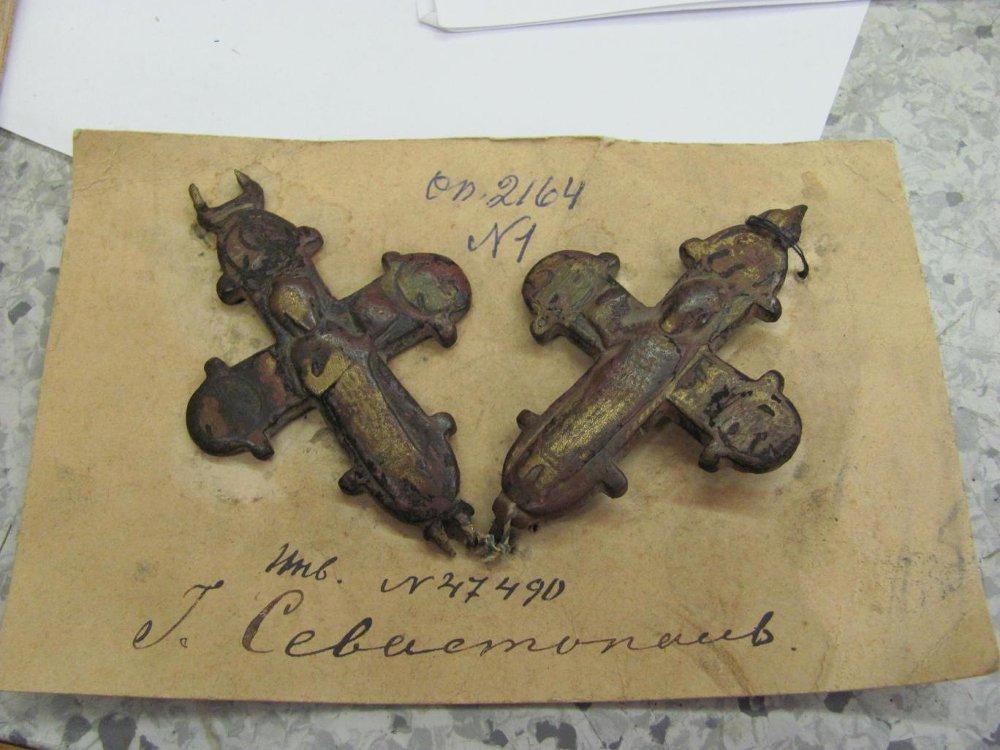 Оп. 2164
№1
Инв. № 47490
Г. Севастополь.